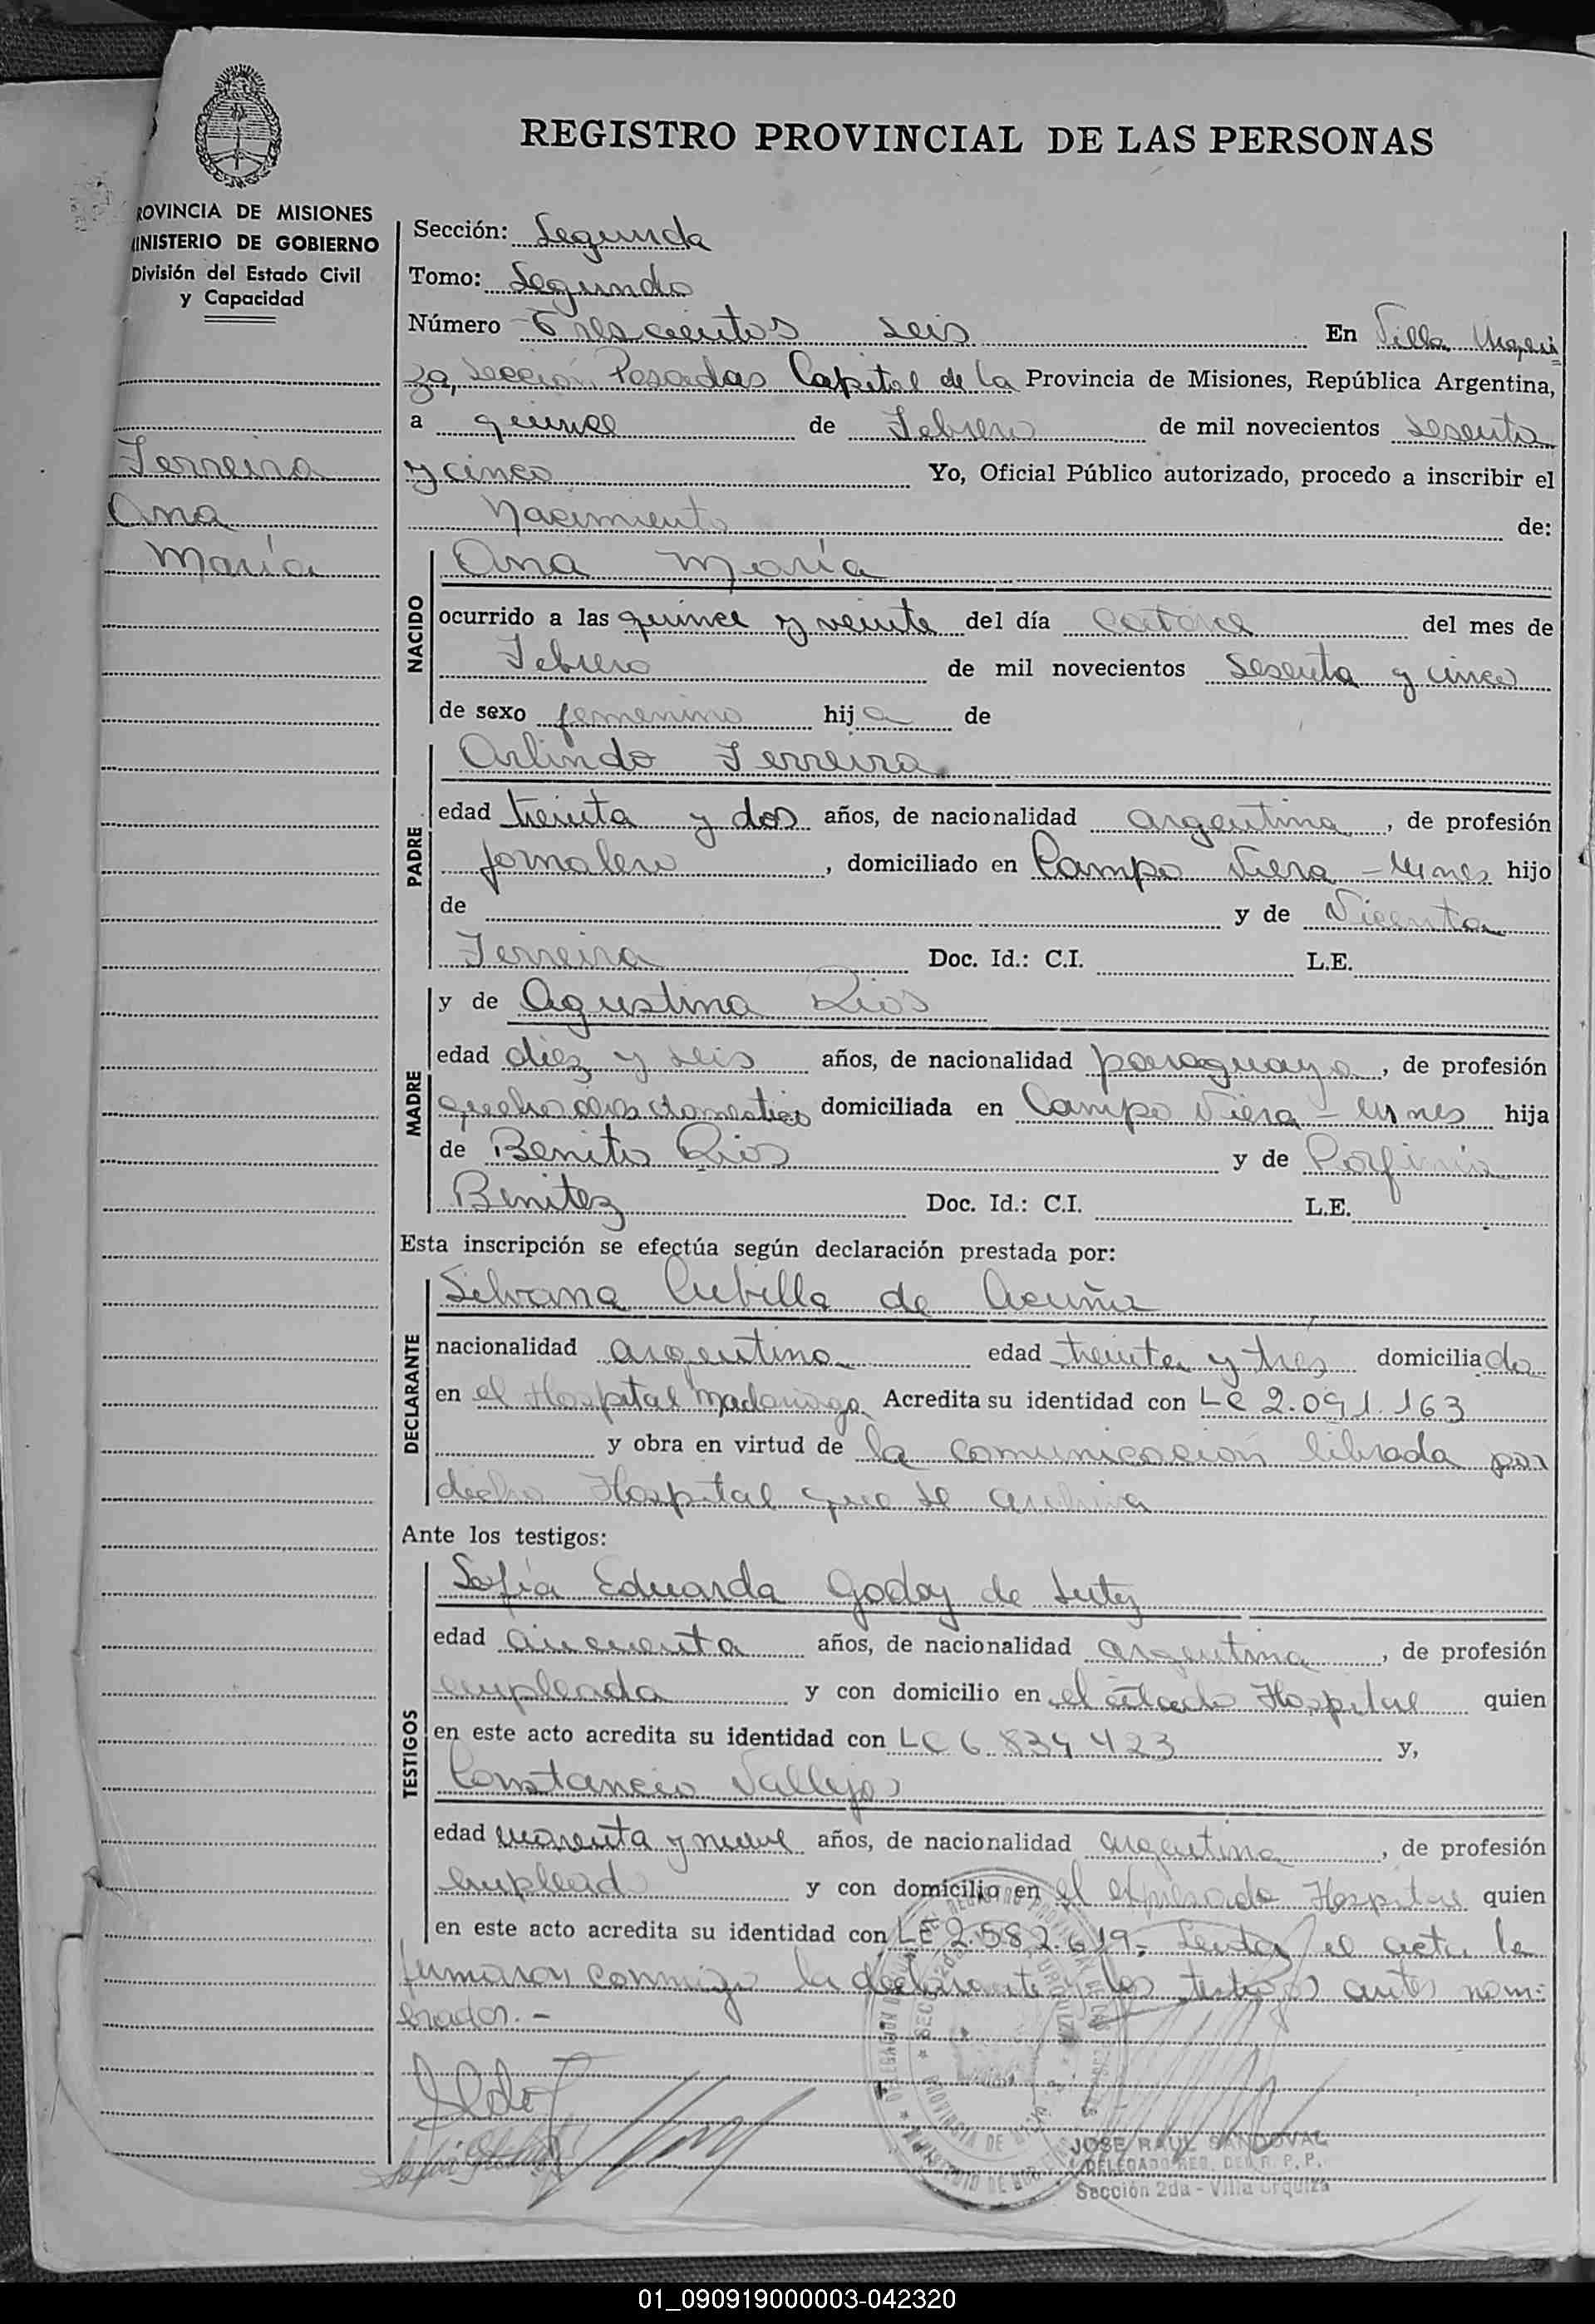 REGISTRO PROVINCIAL DE LAS PERSONAS
PROVINCIA DE MISIONES
MINISTERIO DE GOBIERNO
División del Estado Civil
y Capacidad
Ferreira
Ana
María
Sección: Segunda
Tomo: Segundo
Número Trescientos seis En Villa Urqui
za, Sección Posadas Capital de la Provincia de Misiones, República Argentina,
a quince de Febrero de mil novecientos sesenta
y cinco Yo, Oficial Público autorizado, procedo a inscribir el
Nacimiento de:
NACIDO
Ana María
ocurrido a las quince y veinte del día catorce del mes de
Febrero de mil novecientos sesenta y cinco
de sexo femenino hija de
PADRE
Arlindo Ferreira
edad treinta y dos años, de nacionalidad argentina, de profesión
jornalero, domiciliado en Campo Viera - Mnes hijo
de y de Vicenta
Ferreira Doc. Id.: C.I. L.E.
MADRE
y de Agustina Rios
edad diez y seis años, de nacionalidad paraguaya, de profesión
domiciliada en Campo Viera - Mnes hija
de Benito Rios y de Porfiria
Benitez Doc. Id.: C.I. L.E.
Esta inscripción se efectúa según declaración prestada por:
DECLARANTE
Silvana Cubilla de Acuña
nacionalidad argentina edad treinta y tres domiciliada
en el Hospital Madariaga Acredita su identidad con LC 2.091.163
y obra en virtud de la comunicación librada por
dicho Hospital que se archiva
Ante los testigos:
TESTIGOS
Sofía Eduarda Godoy de
edad cincuenta años, de nacionalidad argentina, de profesión
empleada y con domicilio en el citado Hospital quien
en este acto acredita su identidad con LC 6.834.423 y,
Constancio Vallejos
edad cuarenta y nueve años, de nacionalidad argentina, de profesión
empleado y con domicilio en el expresado Hospital quien
en este acto acredita su identidad con LE 2.582.619.- Leida el acta la
firmaron conmigo la declarante y los testigos antes nom-
brados.-
JOSE RAUL SANDOVAL
DELEGADO REG. DEL R. P. P.
Sección 2da - Villa Urquiza
01_090919000003-042320